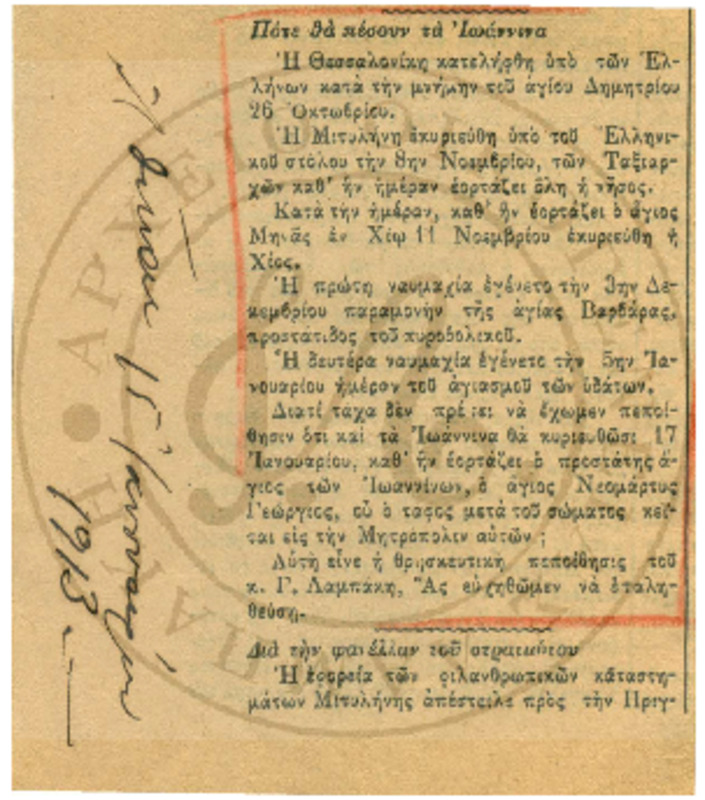 Πότε θὰ πέσουν τὰ Ἰωάννινα
Ἡ Θεσσαλονίκη κατελήφθη ὑπὸ τῶν Ἑλ-
λήνων κατὰ τὴν μνήμην τοῦ ἁγίου Δημητρίου
26 Ὀκτωβρίου.
Ἡ Μιτυλήνη ἐκυριεύθη ὑπὸ τοῦ Ἑλληνι-
κοῦ στόλου τὴν 8ην Νοεμβρίου, τῶν Ταξιαρ-
χῶν καθ' ἣν ἡμέραν ἑορτάζει ὅλη ἡ νῆσος.
Κατὰ τὴν ἡμέραν, καθ' ἣν ἑορτάζει ὁ ἅγιος
Μηνᾶς ἐν Χίῳ 11 Νοεμβρίου ἐκυριεύθη ἡ
Χίος.
Ἡ πρώτη ναυμαχία ἐγένετο τὴν 3ην Δε-
κεμβρίου παραμονὴν τῆς ἁγίας Βαρβάρας,
προστάτιδος τοῦ πυροβολικοῦ.
Ἡ δευτέρα ναυμαχία ἐγένετο τὴν 5ην Ἰα-
νουαρίου ἡμέραν τοῦ ἁγιασμοῦ τῶν ὑδάτων.
Διατί τάχα δὲν πρέπει νὰ ἔχωμεν πεποί-
θησιν ὅτι καὶ τὰ Ἰωάννινα θὰ κυριευθῶσι 17
Ἰανουαρίου, καθ' ἣν ἑορτάζει ὁ προστάτης ἅ-
γιος τῶν Ἰωαννίνων, ὁ ἅγιος Νεομάρτυς
Γεώργιος, οὗ ὁ τάφος μετὰ τοῦ σώματος κεῖ-
ται εἰς τὴν Μητρόπολιν αὐτῶν ;
Αὐτὴ εἶνε ἡ θρησκευτικὴ πεποίθησις τοῦ
κ. Γ. Λαμπάκη, Ἂς εὐχηθῶμεν νὰ ἐπαλη-
θεύσῃ.
Διὰ τὴν φανέλλαν τοῦ στρατιώτου
Ἡ ἐφορεία τῶν φιλανθρωπικῶν κάταστη-
μάτων Μιτυλήνης ἀπέστειλε πρὸς τὴν Πριγ-
15 Ἰανουαρίου
1913